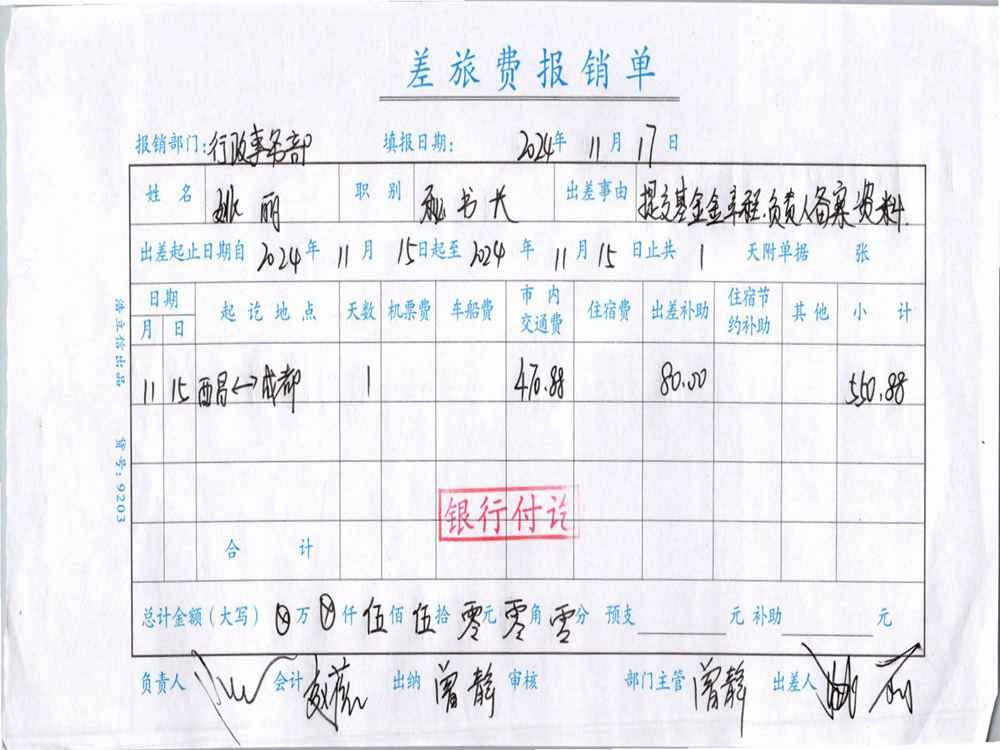 差旅费报销单
报销部门:行政事务部 填报日期: 2024年 11月 17日
姓名 姚丽 职别 秘书长 出差事由 提交基金会章程.负责人备案资料.
出差起止日期自 2024年 11月 15日起至 2024年 11月 15日止共 1 天附单据 张
日期 起讫地点 天数 机票费 车船费 市内交通费 住宿费 出差补助 住宿节约补助 其他 小计
月 日
11 15 西昌↔成都 1 470.88 80.00 550.88
银行付讫
合计
总计金额(大写) ⊗万 ⊗仟 伍佰 伍拾 零元 零角 零分 预支 元 补助 元
负责人 会计 出纳 曾静 审核 部门主管 曾静 出差人 姚丽
浩立信出品 货号:9203